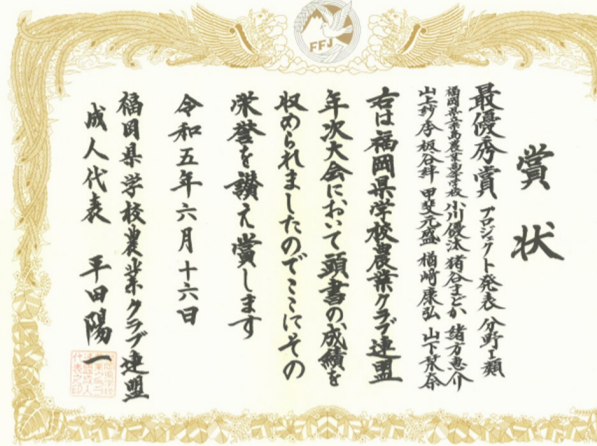 FFJ
賞状
最優秀賞 プロジェクト発表 分野Ⅰ類
小川優汰 猪谷まどか 緒方恵介
山上紗季 板谷絆 甲斐 盛 楢﨑康弘 山下
右は福岡県学校農業クラブ連盟
年次大会において頭書の成績を
収められましたのでここにその
栄誉を讃え賞します
令和五年六月十六日
福岡県学校農業クラブ連盟
成人代表 平田陽一